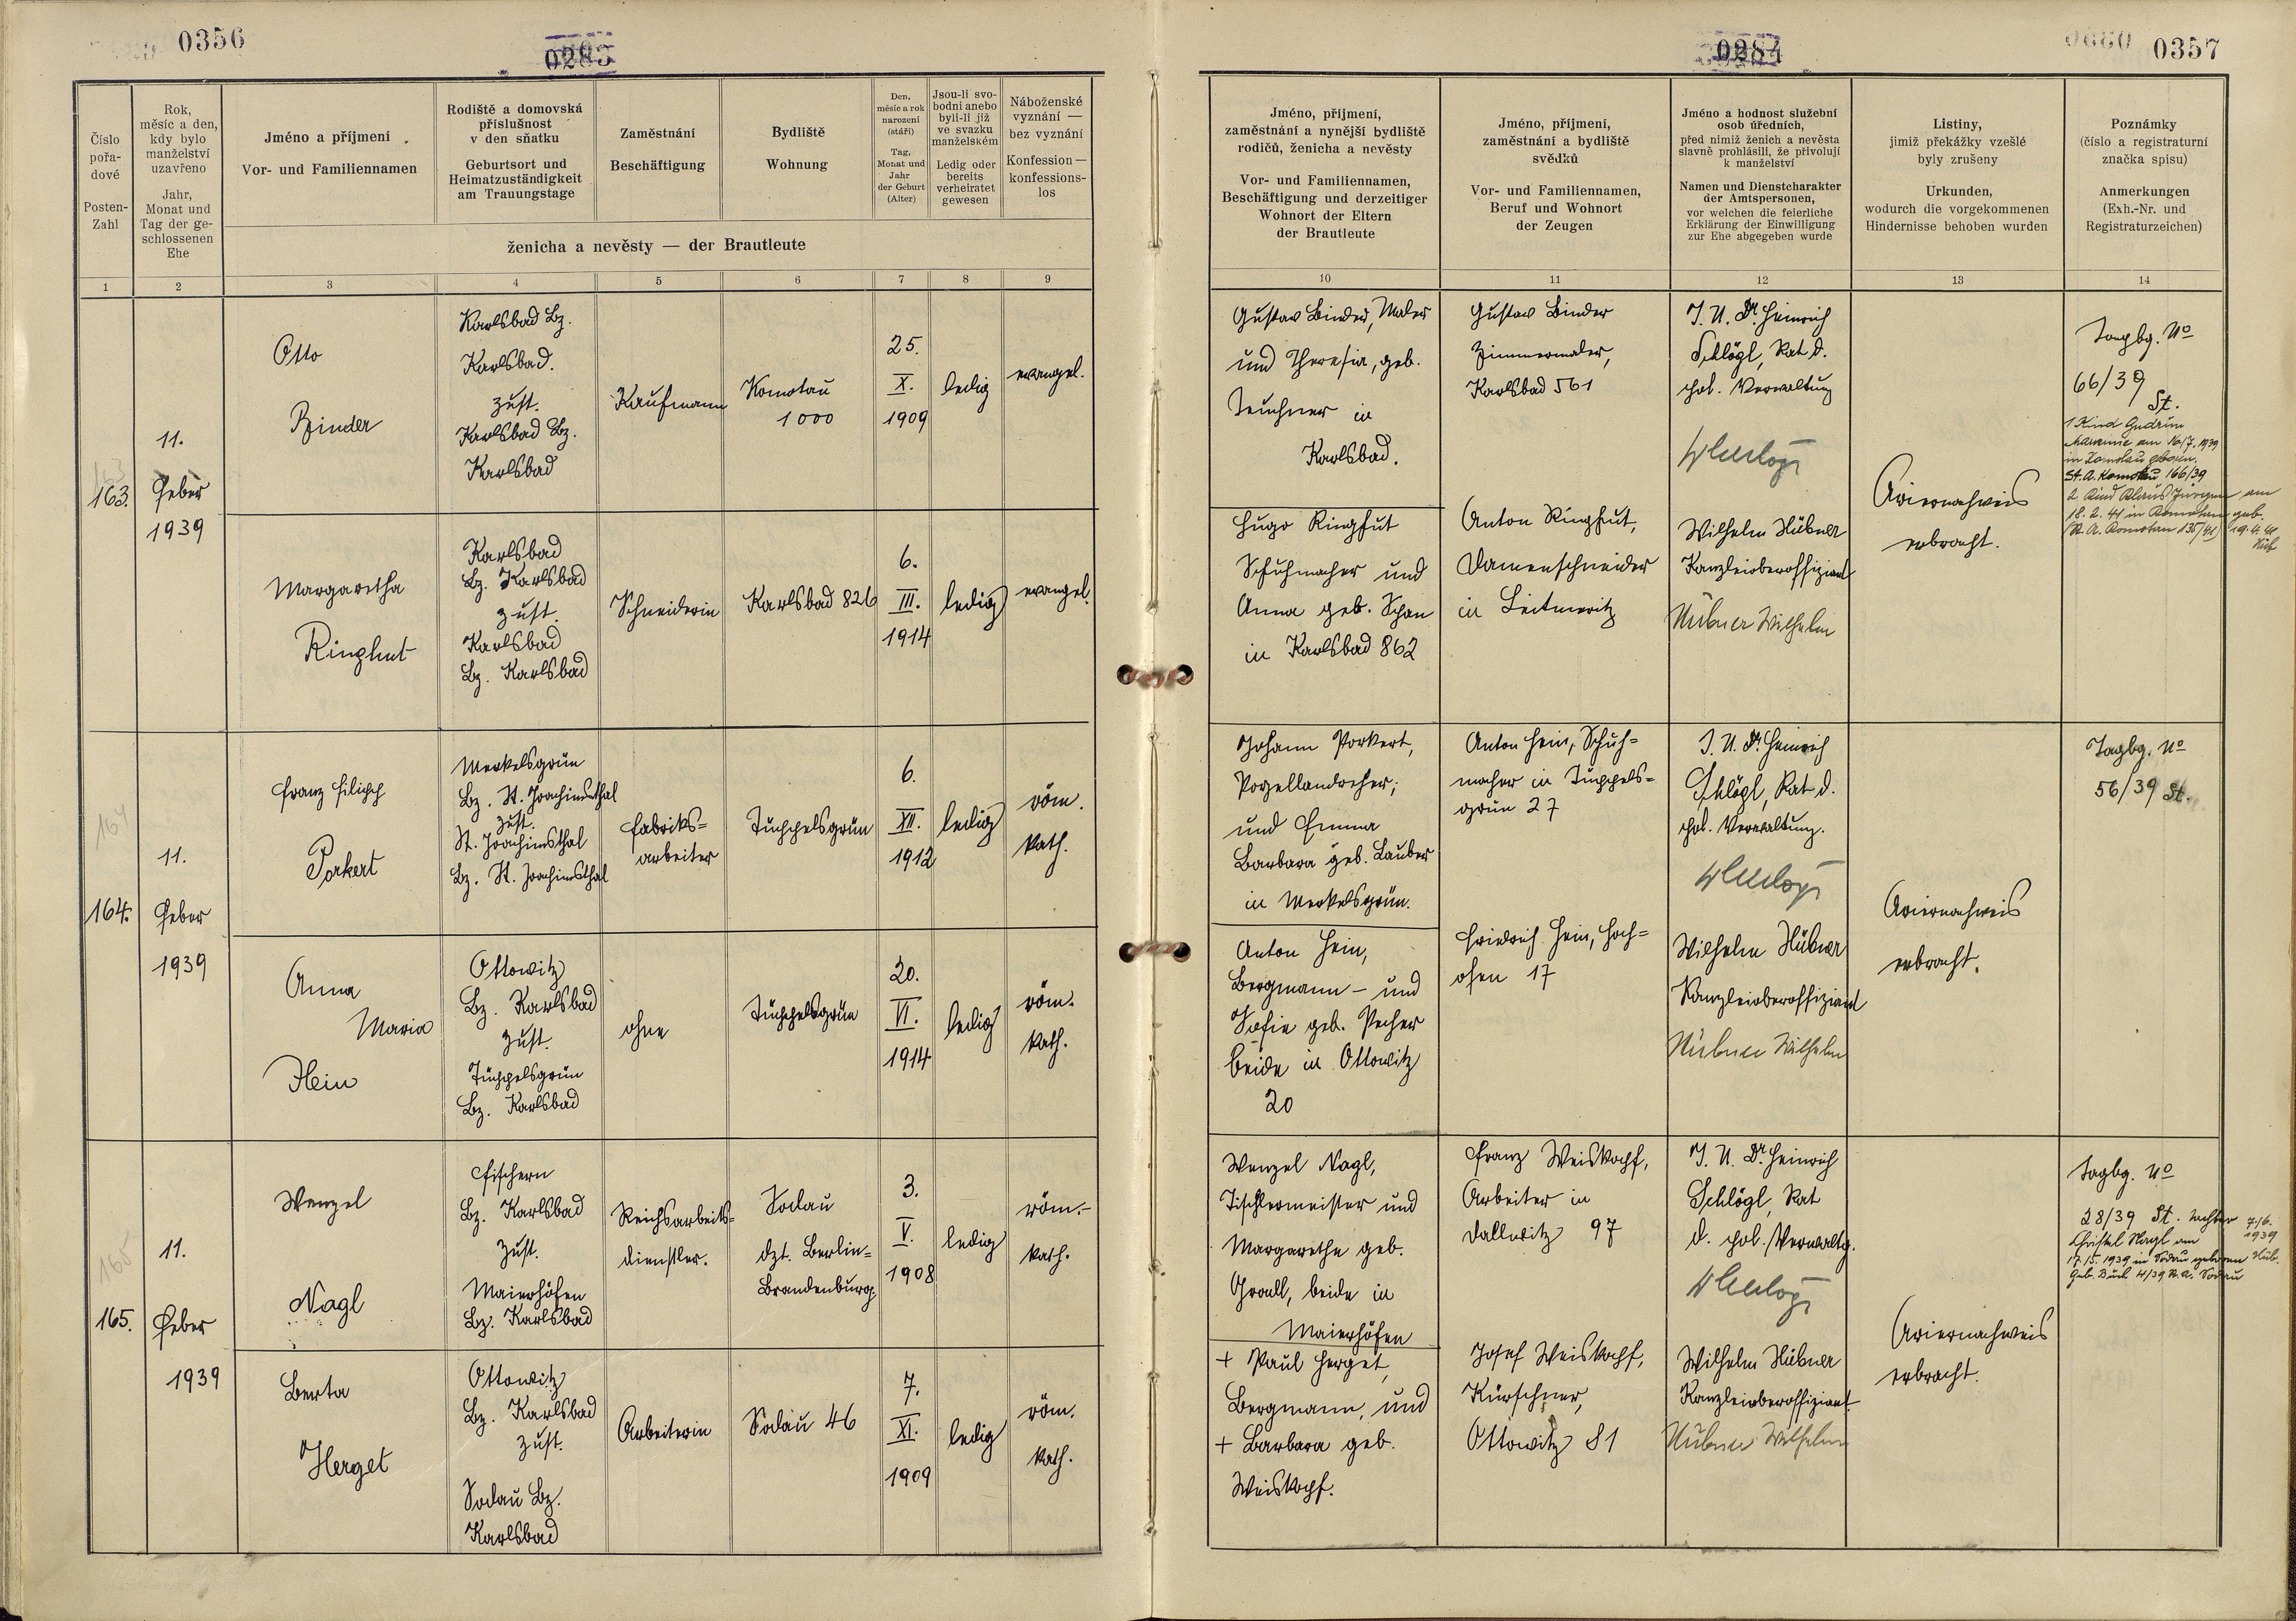 0356
0283
0284
0357
Číslo
pořa-
dové
Posten-
Zahl
Rok,
měsíc a den,
kdy bylo
manželství
uzavřeno
Jahr,
Monat und
Tag der ge-
schlossenen
Ehe
Jméno a příjmení
Vor- und Familiennamen
Rodiště a domovská
příslušnost
v den sňatku
Geburtsort und
Heimatzuständigkeit
am Trauungstage
Zaměstnání
Beschäftigung
Bydliště
Wohnung
Den,
měsíc a rok
narození
(stáří)
Tag,
Monat und
Jahr
der Geburt
(Alter)
Jsou-li svo-
bodni anebo
byli-li již
ve svazku
manželském
Ledig oder
bereits
verheiratet
gewesen
Náboženské
vyznání —
bez vyznání
Konfession —
konfessions-
los
ženicha a nevěsty — der Brautleute
Jméno, příjmení,
zaměstnání a nynější bydliště
rodičů, ženicha a nevěsty
Vor- und Familiennamen,
Beschäftigung und derzeitiger
Wohnort der Eltern
der Brautleute
Jméno, příjmení,
zaměstnání a bydliště
svědků
Vor- und Familiennamen,
Beruf und Wohnort
der Zeugen
Jméno a hodnost služební
osob úředních,
před nimiž ženich a nevěsta
slavně prohlásili, že přivolují
k manželství
Namen und Dienstcharakter
der Amtspersonen,
vor welchen die feierliche
Erklärung der Einwilligung
zur Ehe abgegeben wurde
Listiny,
jimiž překážky vzešlé
byly zrušeny
Urkunden,
wodurch die vorgekommenen
Hindernisse behoben wurden
Poznámky
(číslo a registraturní
značka spisu)
Anmerkungen
(Exh.-Nr. und
Registraturzeichen)
1 2 3 4 5 6 7 8 9 10 11 12 13 14
163.
11.
Feber
1939
Otto
Binder
Karlsbad Bz.
Karlsbad.
zust.
Karlsbad Bz.
Karlsbad
Kaufmann
Komotau
1000
25.
X.
1909
ledig
evangel.
Gustav Binder, Maler
und Theresia, geb.
Teuchner in
Karlsbad.
Gustav Binder
Zimmermaler,
Karlsbad 561
J. U. Dr. Heinrich
Schlögl, Rat d.
pol. Verwaltung
Ariernachweis
erbracht.
Tagbg. No
66/39
St.
1 Kind Gudrun
am 16/7. 1939
in Komotau geboren.
St. A. Komotau 166/39
2. Kind Klaus Jürgen am
18. 2. 41 in Komotau geb.
(St. A. Komotau 135/41) 19.4.41
Hüb
Margaretha
Ringhut
Karlsbad
Bz. Karlsbad
zust.
Karlsbad
Bz. Karlsbad
Schneiderin
Karlsbad 826
6.
III.
1914
ledig
evangel.
Hugo Ringhut
Schuhmacher und
Anna geb. Schan
in Karlsbad 862
Anton Ringhut,
Damenschneider
in Leitmeritz
Wilhelm Hübner
Kanzleioberoffiziant
Hübner Wilhelm
164
164.
11.
Feber
1939
Franz Filipp
Porkert
Merkelsgrün
Bz. St. Joachimsthal
zust.
St. Joachimsthal
Bz. St. Joachimsthal
Fabriks=
arbeiter
Tüppelsgrün
6.
XII.
1912
ledig
röm.
kath.
Johann Porkert,
Porzellandreher,
und Emma
Barbara geb. Lauber
in Merkelsgrün.
Anton Hein, Schuh=
macher in Tüppels=
grün 27
J. U. Dr. Heinrich
Schlögl, Rat d.
pol. Verwaltung.
Ariernachweis
erbracht.
Tagbg. No
56/39 St.
Anna
Maria
Hein
Ottowitz
Bz. Karlsbad
zust.
Tüppelsgrün
Bz. Karlsbad
ohne
Tüppelsgrün
20.
VI.
1914
ledig
röm.
kath.
Anton Hein,
Bergmann - und
Sofie geb. Pecher
beide in Ottowitz
20
Friedrich Hein, Hoch=
ofen 17
Wilhelm Hübner
Kanzleioberoffiziant
Hübner Wilhelm
165
165.
11.
Feber
1939
Wenzel
Nagl
Fischern
Bz. Karlsbad
zust.
Maierhöfen
Bz. Karlsbad
Reichsarbeits=
dienstler.
Sodau
dzt. Berlin=
Brandenburg.
3.
V.
1908
ledig
röm.-
kath.
Wenzel Nagl,
Tischlermeister und
Margarethe geb.
beide in
Maierhöfen
Franz Weiskopf,
Arbeiter in
Dallwitz 97
J. U. Dr. Heinrich
Schlögl, Rat
d. pol. Verwaltg.
Ariernachweis
erbracht.
Tagbg. No
28/39 St. Tochter 7/6.
Christel Nagl am 1939
17.5.1939 in Sodau geboren Hüb.
Geb. Buch 4/39 St. A. Sodau
Berta
Herget
Ottowitz
Bz. Karlsbad
zust.
Sodau Bz.
Karlsbad
Arbeiterin
Sodau 46
7.
XI.
1909
ledig
röm.
kath.
+ Paul Herget,
Bergmann, und
+ Barbara geb.
Weiskopf.
Josef Weiskopf,
Kürschner,
Ottowitz 81
Wilhelm Hübner
Kanzleioberoffiziant.
Hübner Wilhelm